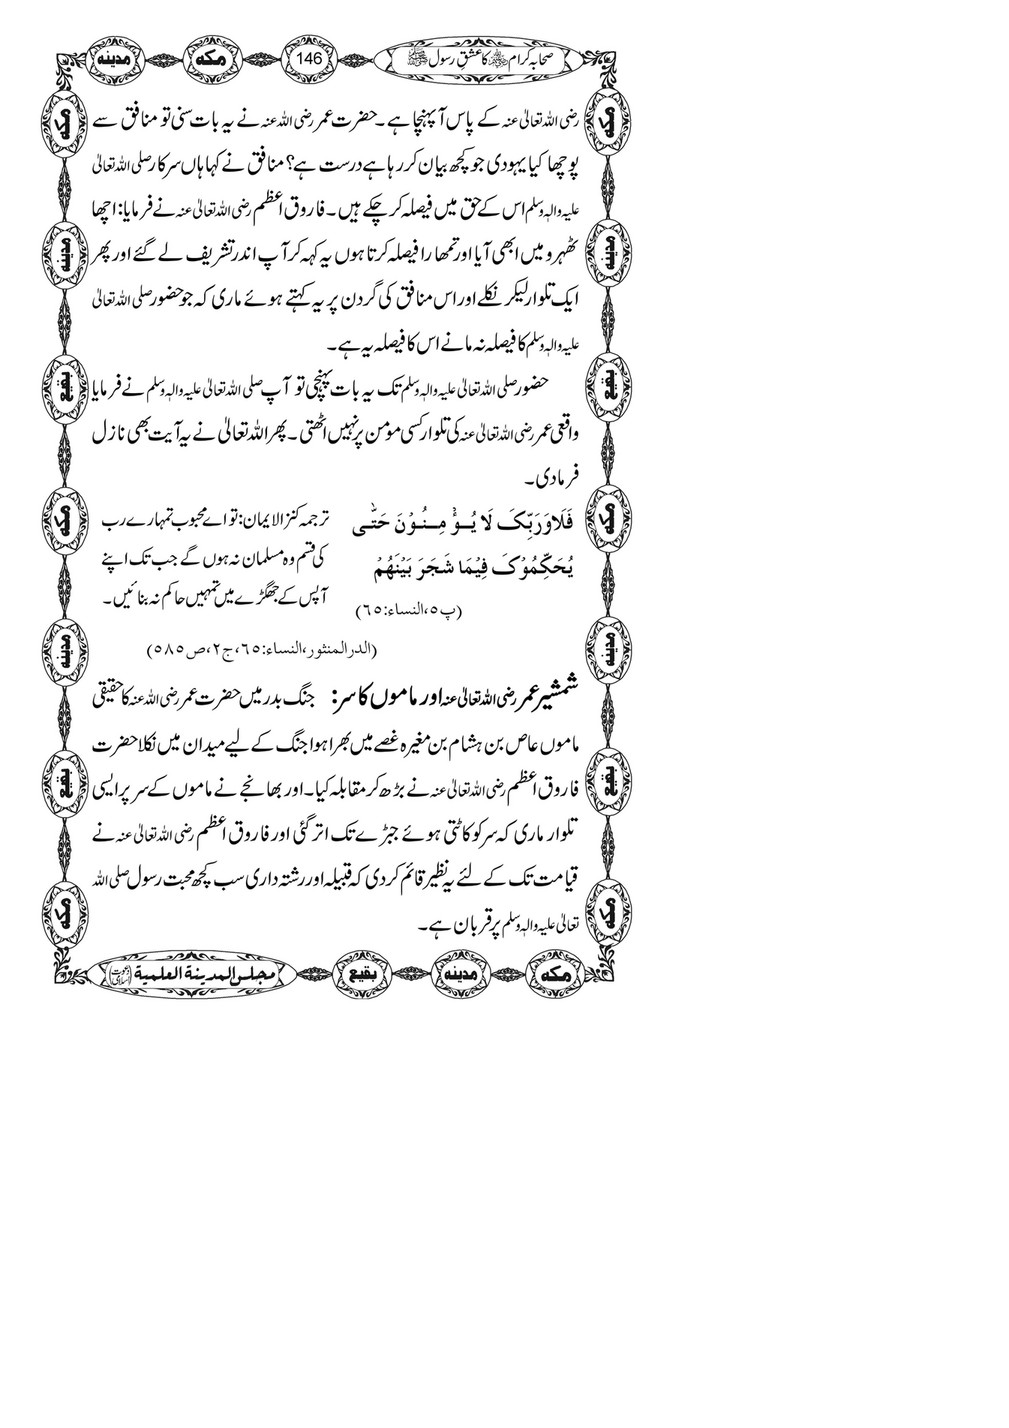 صحابہ کرام ﷺ کا عشقِ رسول ﷺ 146 مکہ مدینہ
رضی اللہ تعالیٰ عنہ کے پاس آ پہنچا ہے۔ حضرت عمر رضی اللہ عنہ نے یہ بات سنی تو منافق سے
پوچھا کیا یہودی جو کچھ بیان کر رہا ہے درست ہے؟ منافق نے کہا ہاں سرکار صلی اللہ تعالیٰ
علیہ والہٖ وسلم اس کے حق میں فیصلہ کر چکے ہیں۔ فاروق اعظم رضی اللہ تعالیٰ عنہ نے فرمایا: اچھا
ٹھہرو میں ابھی آیا اور تمھارا فیصلہ کرتا ہوں یہ کہہ کر آپ اندر تشریف لے گئے اور پھر
ایک تلوار لیکر نکلے اور اس منافق کی گردن پر یہ کہتے ہوئے ماری کہ جو حضور صلی اللہ تعالیٰ
علیہ والہٖ وسلم کا فیصلہ نہ مانے اس کا فیصلہ یہ ہے۔
حضور صلی اللہ تعالیٰ علیہ والہٖ وسلم تک یہ بات پہنچی تو آپ صلی اللہ تعالیٰ علیہ والہٖ وسلم نے فرمایا
واقعی عمر رضی اللہ تعالیٰ عنہ کی تلوار کسی مومن پر نہیں اٹھتی۔ پھر اللہ تعالیٰ نے یہ آیت بھی نازل
فرمادی۔
فَلَا وَرَبِّکَ لَا یُؤْمِنُوْنَ حَتّٰی
یُحَکِّمُوْکَ فِیْمَا شَجَرَ بَیْنَهُمْ
(پ٥،النساء:٦٥)
ترجمہ کنزالایمان: تو اے محبوب تمہارے رب
کی قسم وہ مسلمان نہ ہوں گے جب تک اپنے
آپس کے جھگڑے میں تمہیں حاکم نہ بنائیں۔
(الدرالمنثور،النساء:٦٥،ج٢،ص٥٨٥)
شمشیرِ عمر رضی اللہ تعالیٰ عنہ اور ماموں کا سر: جنگ بدر میں حضرت عمر رضی اللہ عنہ کا حقیقی
ماموں عاص بن ہشام بن مغیرہ غصے میں بھرا ہوا جنگ کے لیے میدان میں نکلا حضرت
فاروق اعظم رضی اللہ تعالیٰ عنہ نے بڑھ کر مقابلہ کیا۔ اور بھانجے نے ماموں کے سر پر ایسی
تلوار ماری کہ سر کو کاٹتی ہوئے جبڑے تک اتر گئی اور فاروق اعظم رضی اللہ تعالیٰ عنہ نے
قیامت تک کے لئے یہ نظیر قائم کردی کہ قبیلہ اور رشتہ داری سب کچھ محبت رسول صلی اللہ
تعالیٰ علیہ والہٖ وسلم پر قربان ہے۔
مکہ مدینہ بقیع مکہ مدینہ بقیع مکہ
مکہ مدینہ بقیع مکہ مدینہ بقیع مکہ
مکہ مدینہ بقیع مجلس المدینۃ العلمیۃ (دعوت اسلامی)